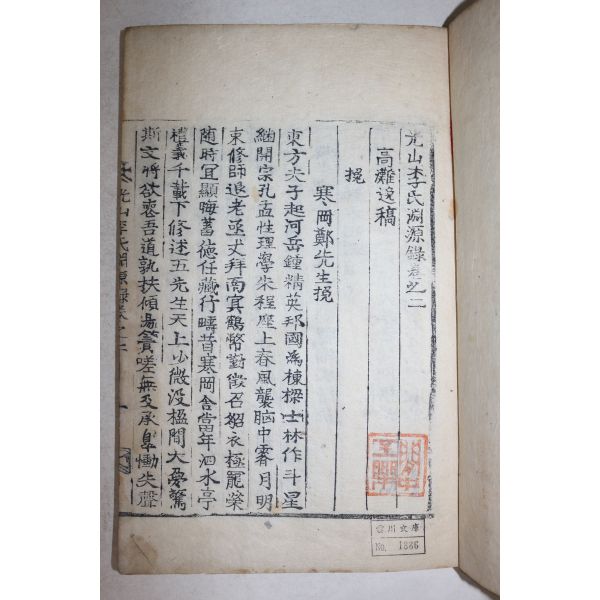 光山李氏淵源錄卷之二
高灘逸稿
挽
寒岡鄭先生挽
東方夫子起河岳鍾精英邦國為棟樑士林作斗星
紬開宗孔孟性理學朱程座上春風襲胸中霽月明
束修師退老函丈拜南冥鶴幣勤徵召貂衣極寵榮
隨時宜顯晦蓄德任藏行疇昔寒岡舍當年泗水亭
禮義千載下修述五先生天上少微沒楹間大夢驚
斯文將欲喪吾道孰扶傾易簀嗟無及承皐慟失聲
光山李氏淵源錄卷之二
川文庫
No. 1886